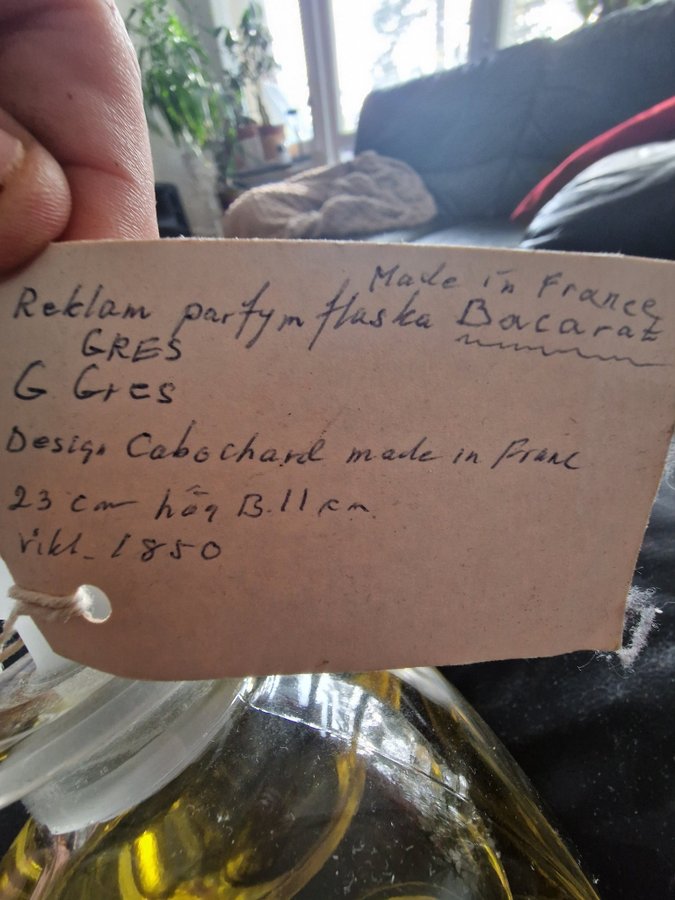 Made in France
Reklam parfym flaska Bacarat
GRES
G Gres
Design Cabochard made in Franc
23 cm hög B.11 cm
vikt. 1850